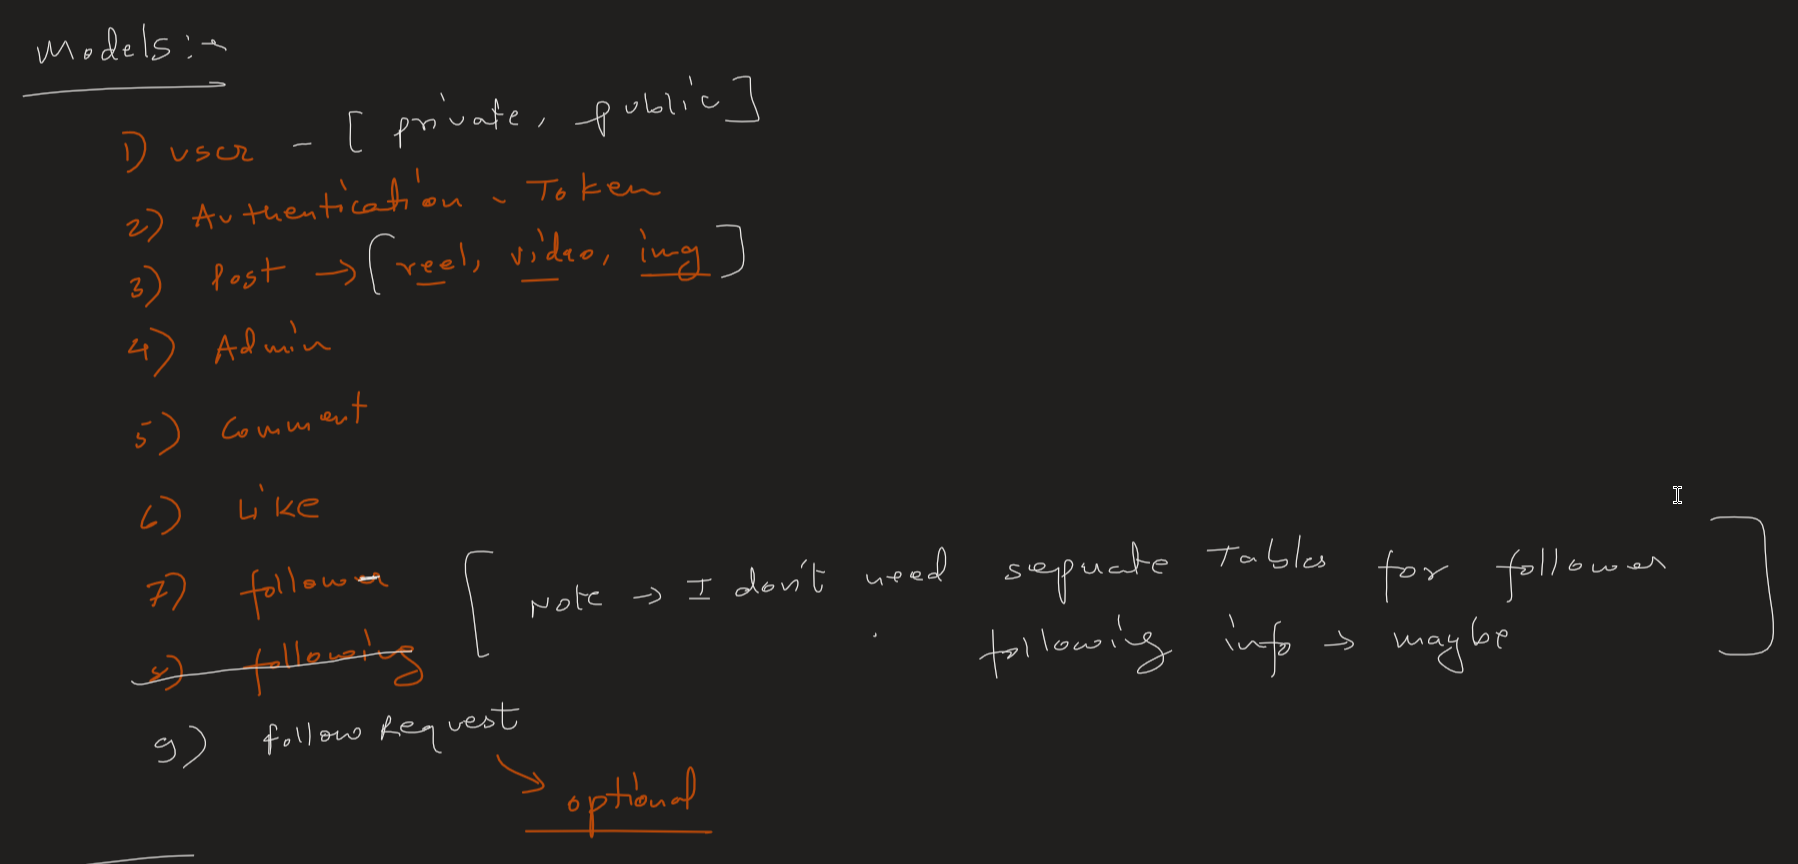 Models :→
1) user - [ private, public ]
2) Authentication - Token
3) Post → [ reel, video, img ]
4) Admin
5) Comment
6) Like
7) follow
8) following
[ Note → I don't need sepuate Tables for follower
following info → maybe ]
9) follow Request
optional